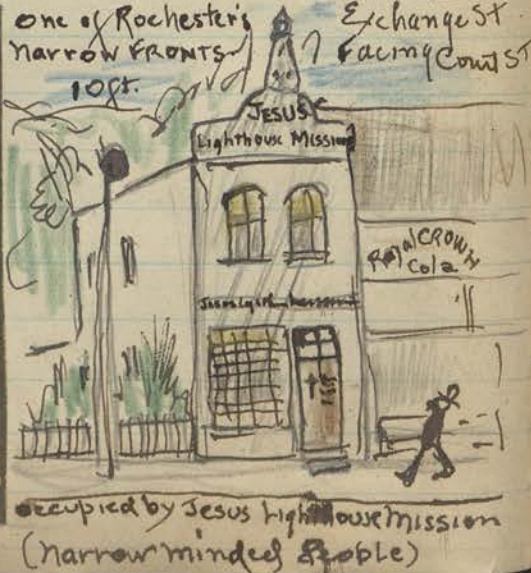 one of Rochester's
narrow FRONTS
10 ft.
Exchange St
Facing Court St
JESUS
Lighthouse Mission
Royal CROWN
Cola
occupied by Jesus Lighthouse Mission
(narrow minded People)